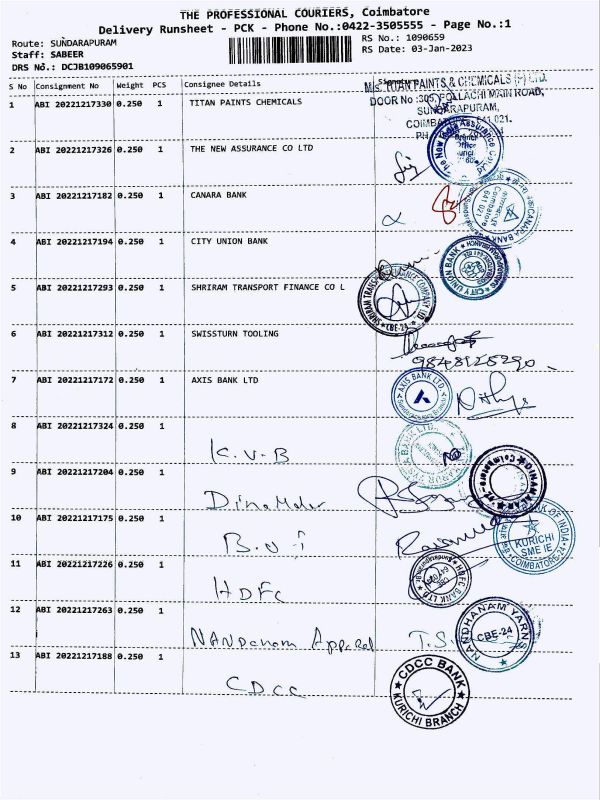 THE PROFESSIONAL COURIERS, Coimbatore
Delivery Runsheet - PCK - Phone No.:0422-3505555 - Page No.:1
Route: SUNDARAPURAM
RS No.: 1090659
Staff: SABEER
RS Date: 03-Jan-2023
DRS No.: DCJB109065901
S No Consignment No Weight PCS Consignee Details Signature
M/s. TITAN PAINTS & CHEMICALS (P) LTD.
1 ABI 20221217330 0.250 1 TITAN PAINTS CHEMICALS
DOOR No :305, POLLACHI MAIN ROAD,
SUNDARAPURAM,
COIMBATORE - 641 021.
PH
2 ABI 20221217326 0.250 1 THE NEW ASSURANCE CO LTD
The New India Assurance Co
Branch Office
3 ABI 20221217182 0.250 1 CANARA BANK
CANARA BANK
Coimbatore
641 021
4 ABI 20221217194 0.250 1 CITY UNION BANK
CITY UNION BANK
5 ABI 20221217293 0.250 1 SHRIRAM TRANSPORT FINANCE CO L
SHRIRAM TRANSPORT FINANCE COMPANY LTD.
CBE-24
6 ABI 20221217312 0.250 1 SWISSTURN TOOLING
7 ABI 20221217172 0.250 1 AXIS BANK LTD
AXIS BANK LTD.
8 ABI 20221217324 0.250 1
K.V.B
9 ABI 20221217204 0.250 1
Dinamalar
DINAMALAR
Coimbatore
10 ABI 20221217175 0.250 1
B.O.I
BANK OF INDIA
KURICHI
SME IE
COIMBATORE-24
11 ABI 20221217226 0.250 1
HDFC
HDFC BANK LTD
12 ABI 20221217263 0.250 1
Nandanam Apparel
T.S.
NANDHANAM YARNS
CBE-24
13 ABI 20221217188 0.250 1
CDCC
CDCC BANK
KURICHI BRANCH